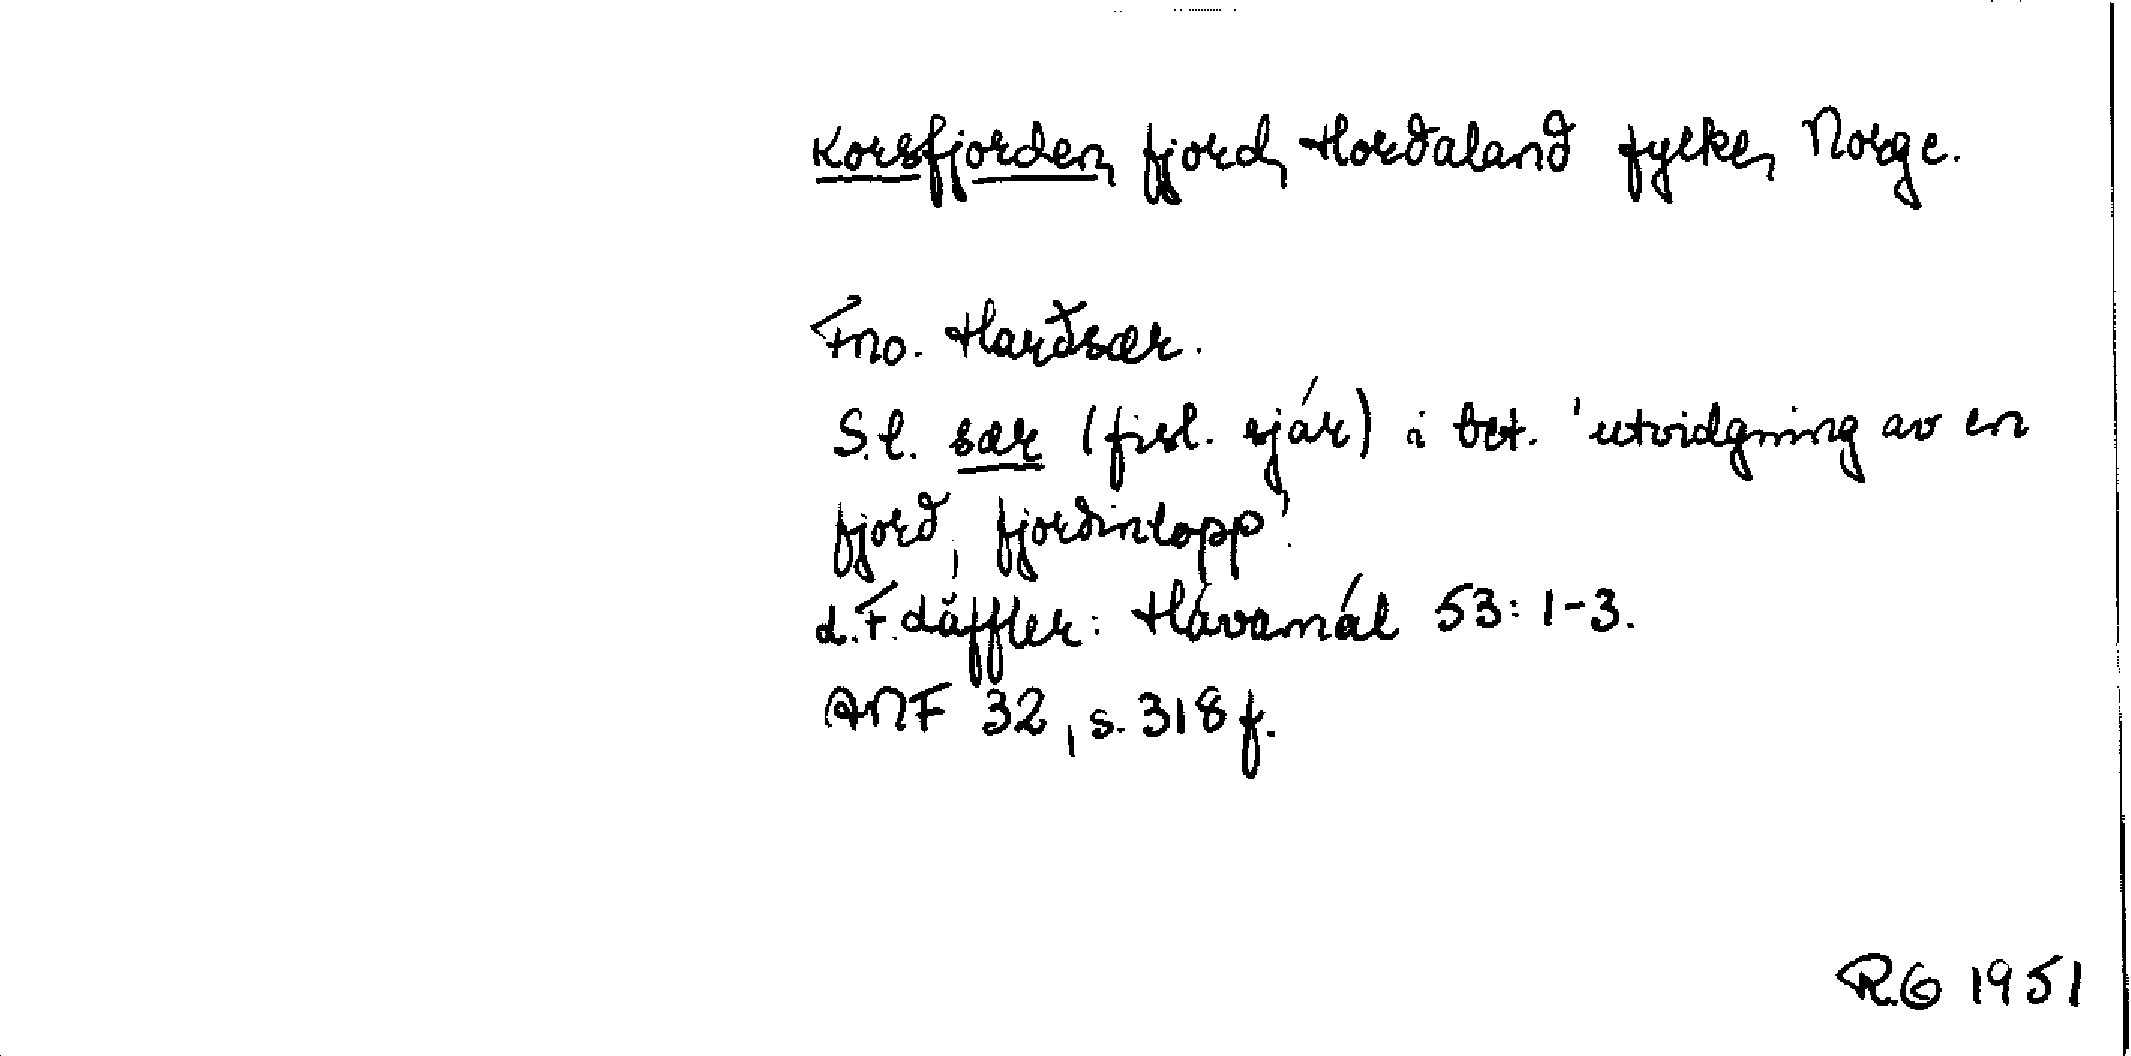 Korsfjorden, fjord, Hordaland fylke, Norge.
Fno. Harðsær.
S.l. sær (fisl. sjár) i bet. 'utvidgning av en
fjord, fjordinlopp'.
L.F. Läffler: Hávamál 53: 1-3.
ANF 32, s. 318 f.
R.G 1951